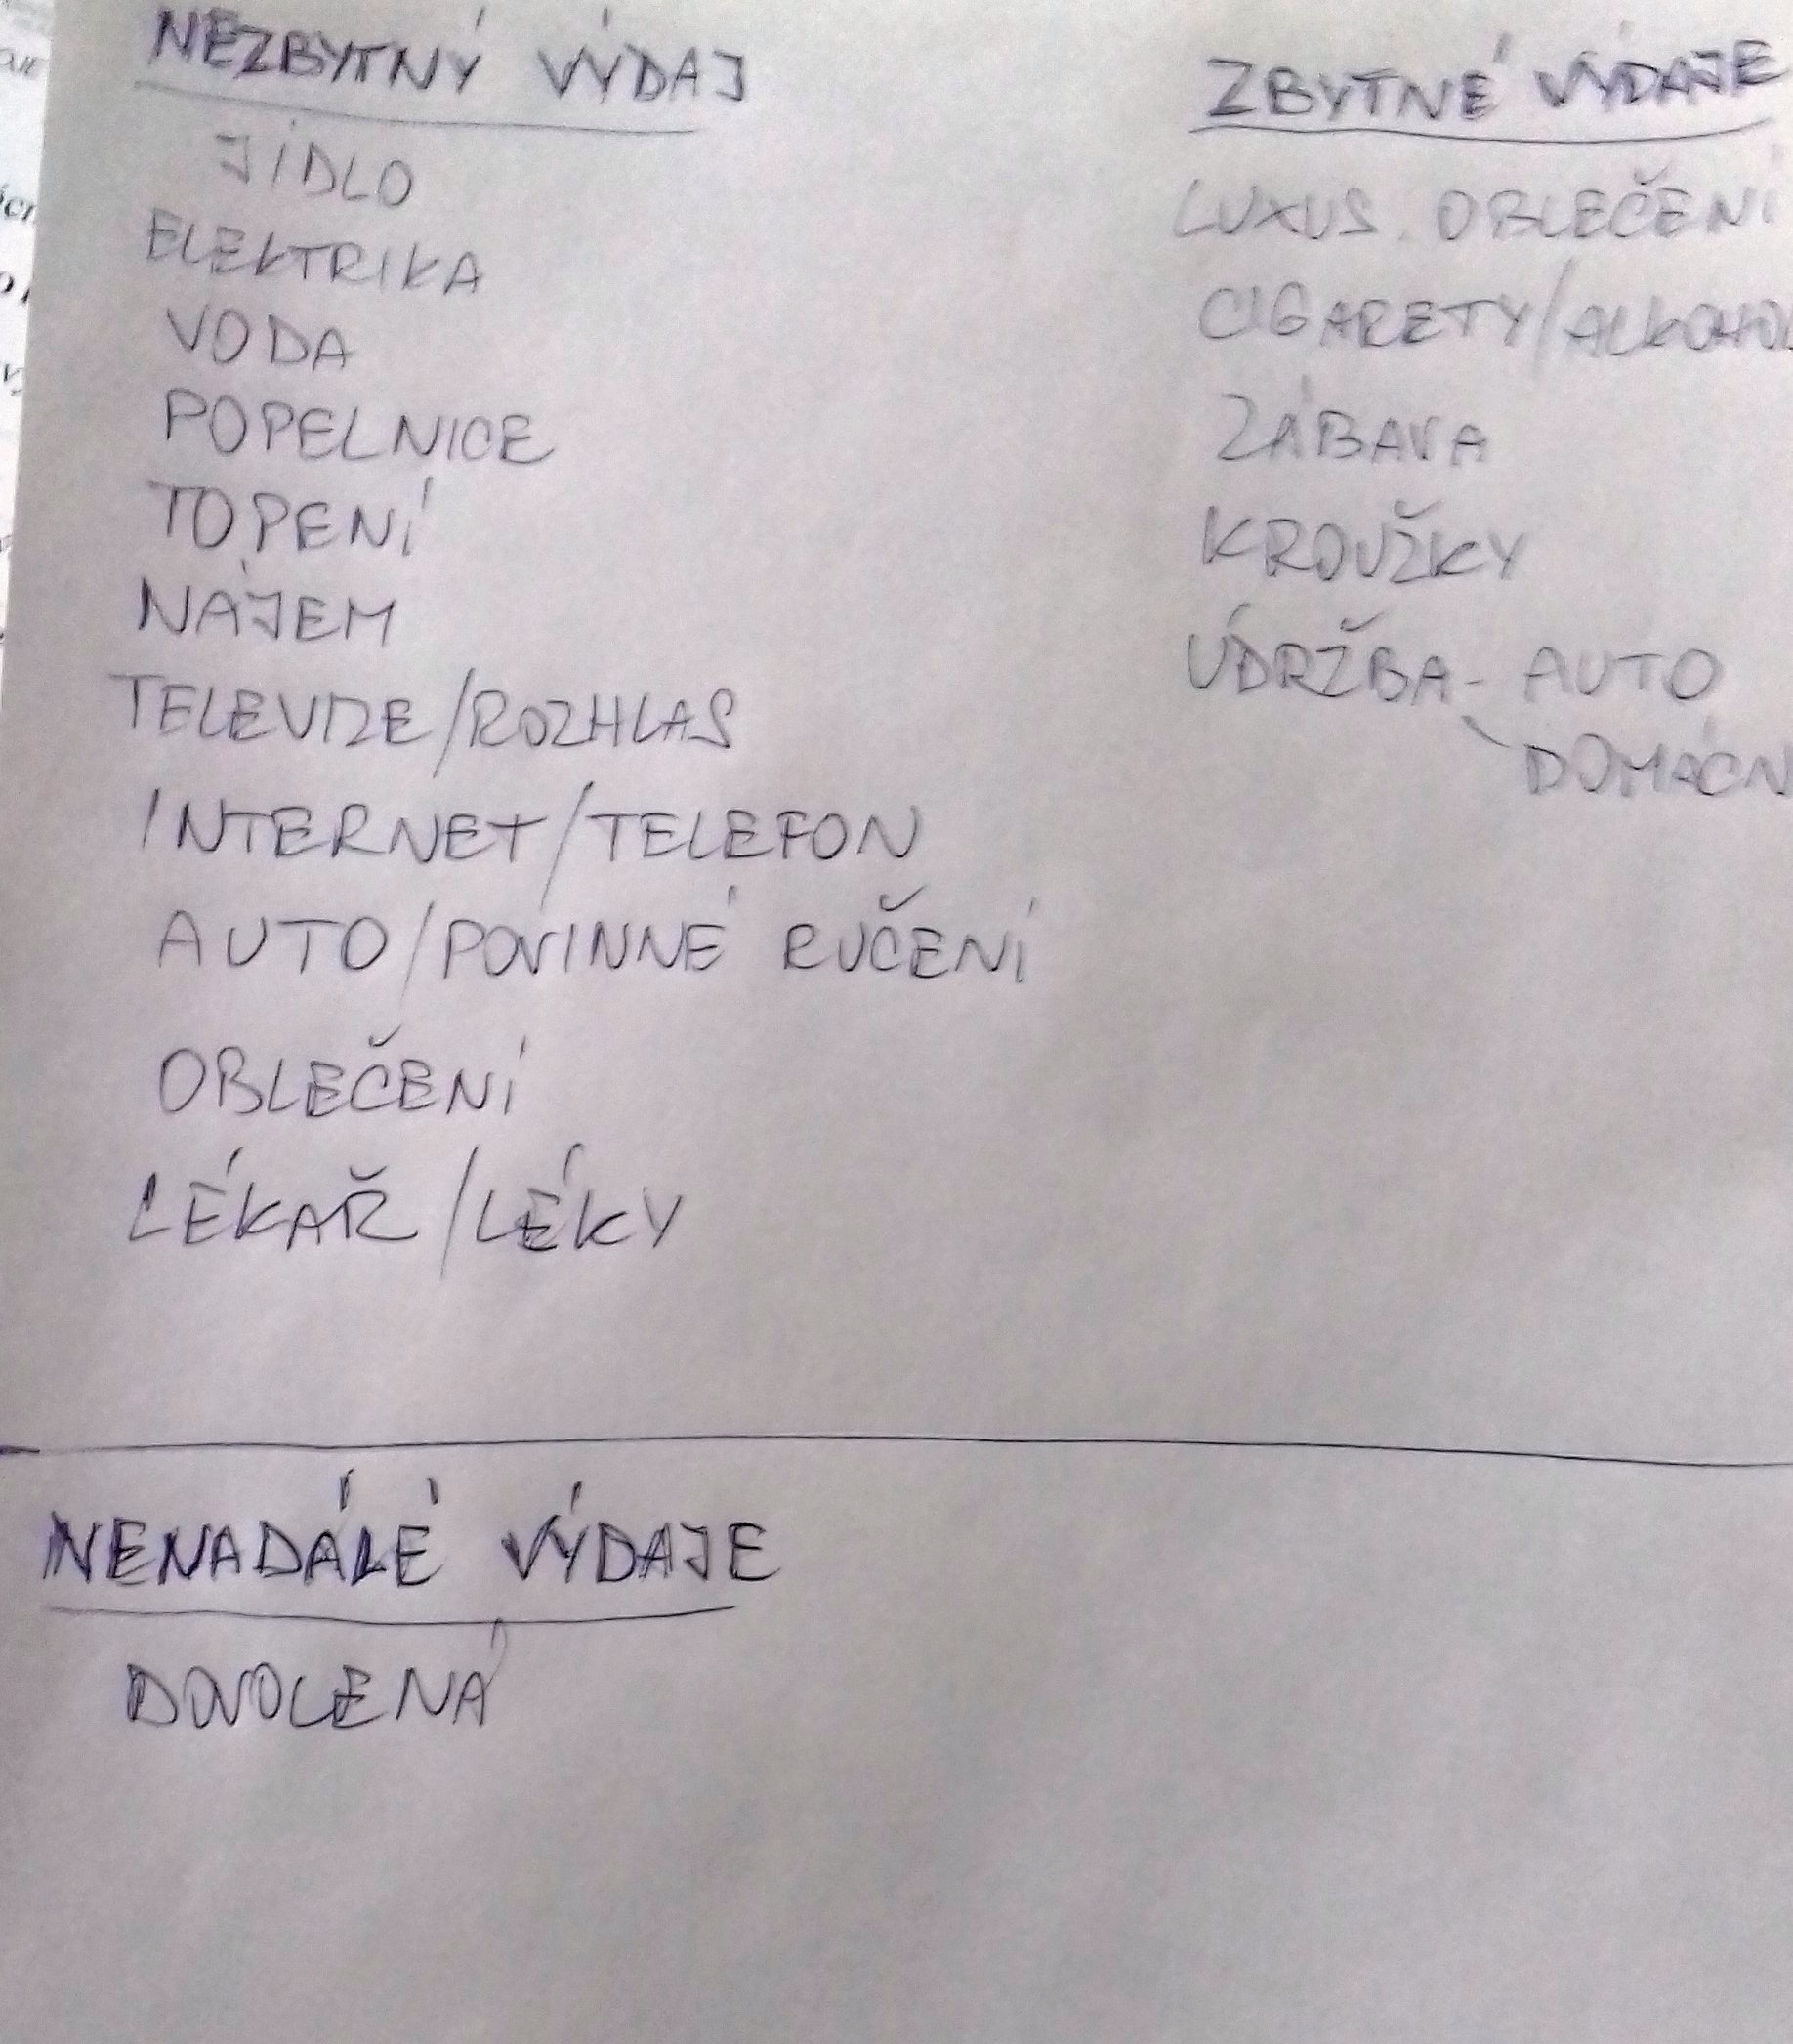 NEZBYTNÝ VÝDAJ
JÍDLO
ELEKTRIKA
VODA
POPELNICE
TOPENÍ
NÁJEM
TELEVIZE/ROZHLAS
INTERNET/TELEFON
AUTO/POVINNÉ RUČENÍ
OBLEČENÍ
LÉKAŘ/LÉKY
ZBYTNÉ VÝDAJE
LUXUS. OBLEČENÍ
CIGARETY/ALKOHOL
ZÁBAVA
KROUŽKY
ÚDRŽBA - AUTO
DOMÁCN
NENADÁLÉ VÝDAJE
DOVOLENÁ